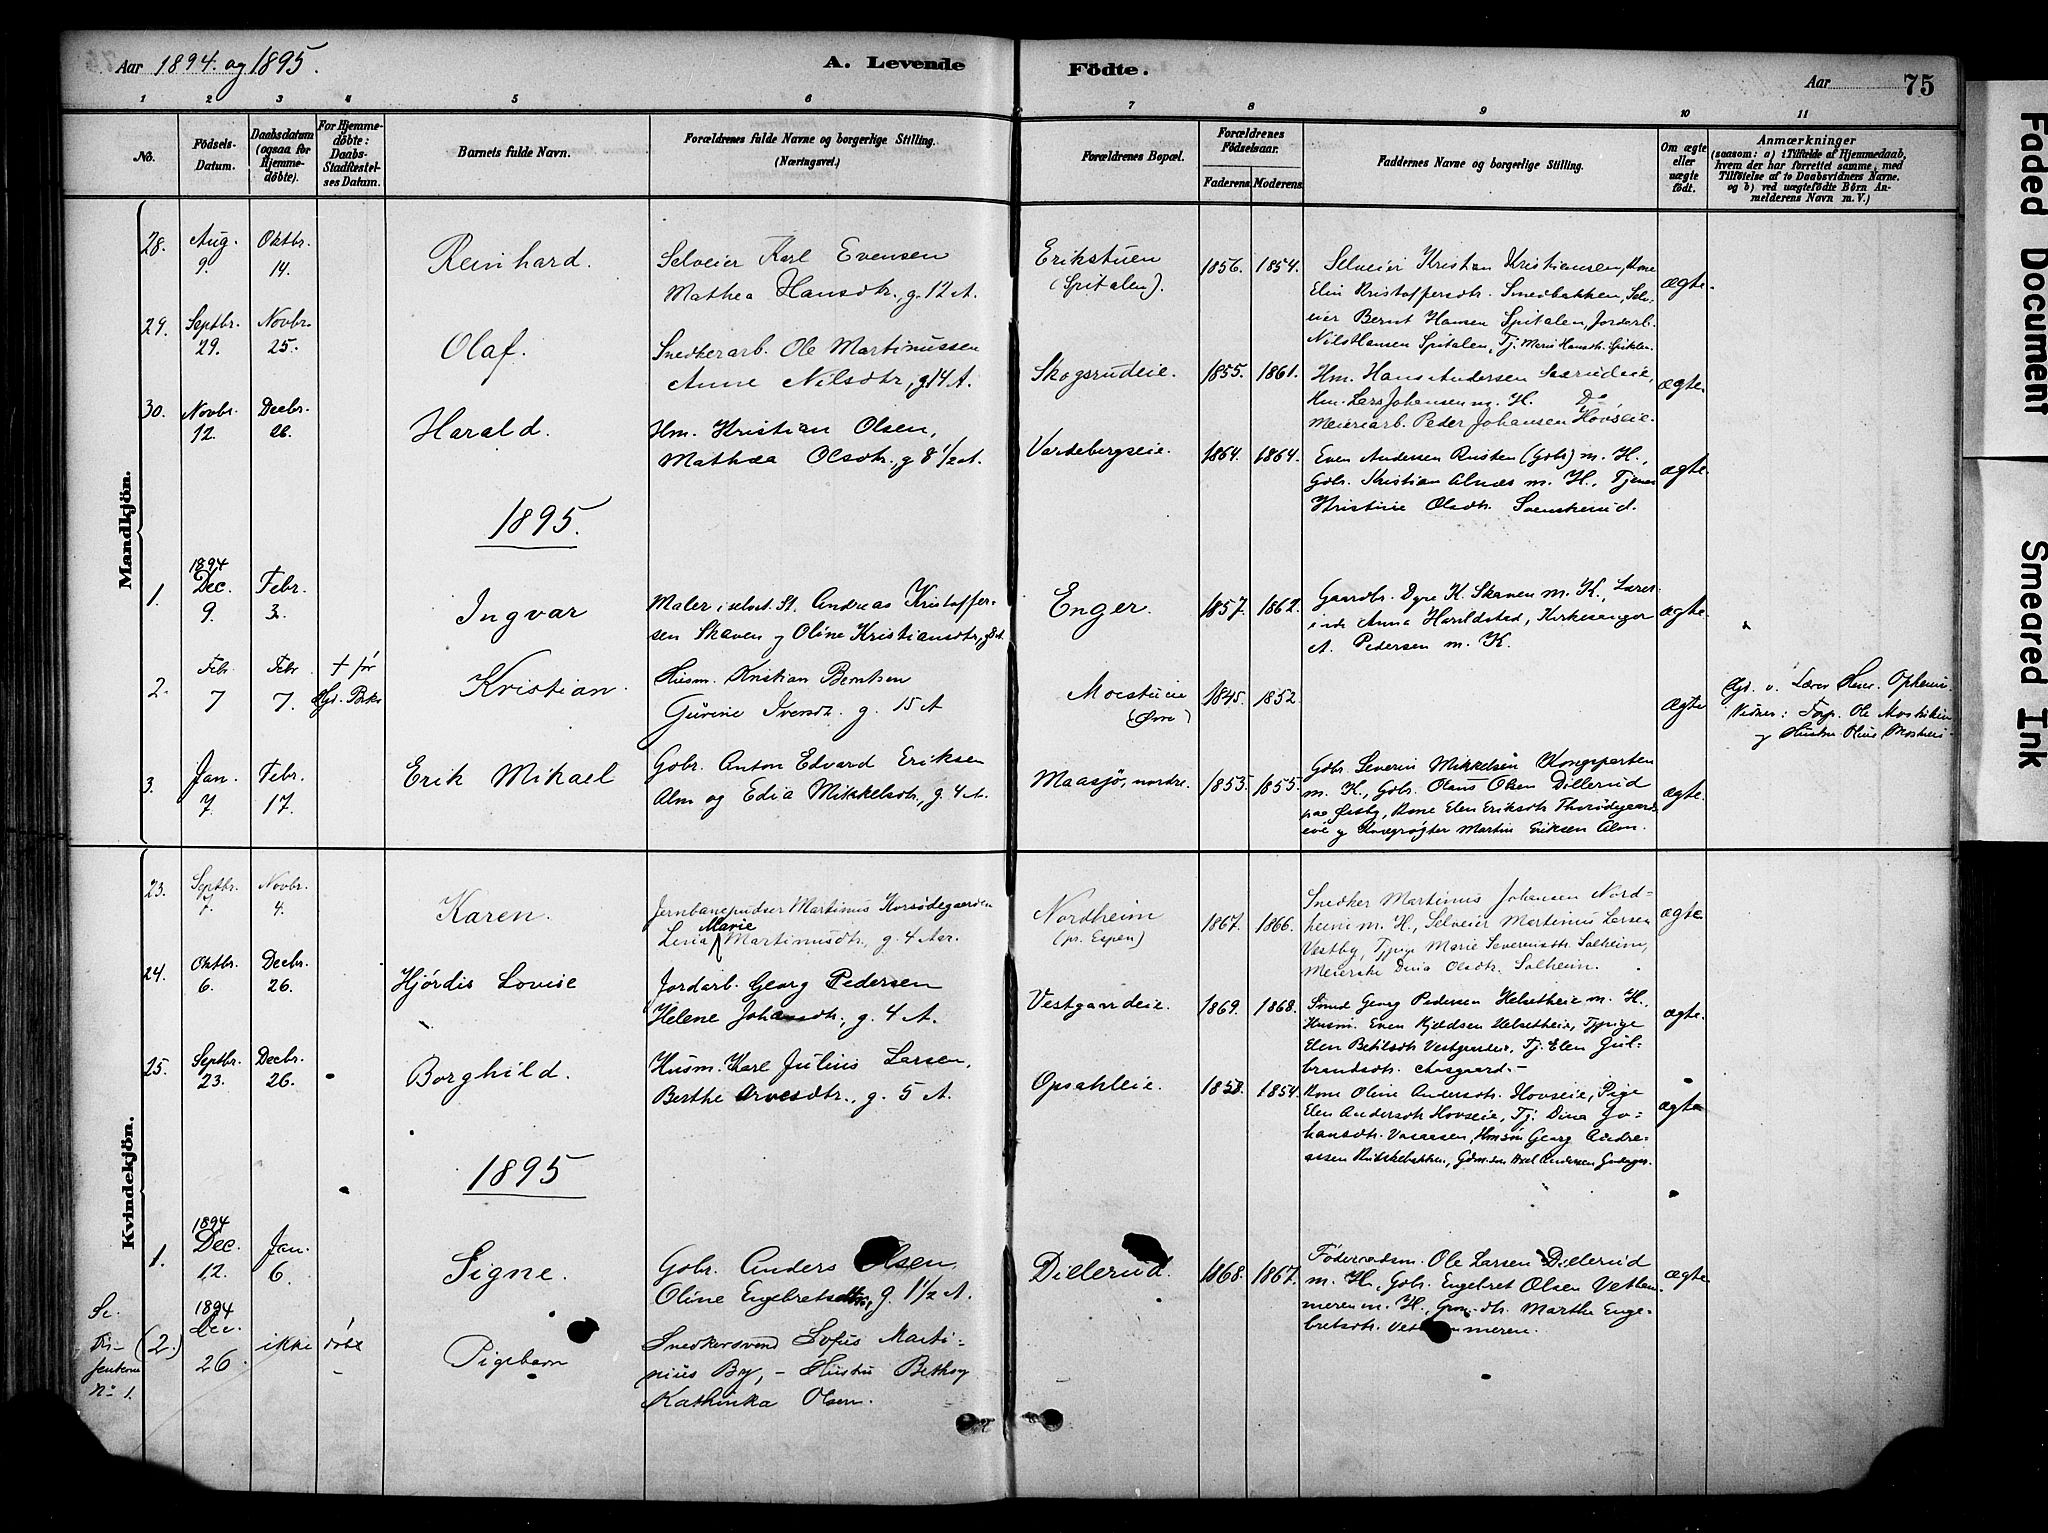 Aar 1894. og 1895.
A. Levende Födte.
Aar 75
1 2 3 4 5 6 7 8 9 10 11
No.
Födsels-
Datum.
Daabsdatum
(ogsaa for
Hjemme-
döbte).
For Hjemme-
döbte:
Daabs-
Stadfæstel-
ses Datum.
Barnets fulde Navn.
Forældrenes fulde Navne og borgerlige Stilling.
(Næringsvei.)
Forældrenes Bopæl.
Forældrenes
Födselsaar.
Faderens. Moderens.
Faddernes Navne og borgerlige Stilling.
Om ægte
eller
uægte
födt.
Anmærkninger
(saasom: a) i Tilfælde af Hjemmedaab,
hvem der har forrettet samme, med
Tilföielse af to Daabsvidners Navne,
og b) ved uægtefödte Börn An-
melderens Navn m. V.)
Mandkjön.
28. Aug. 9. Oktbr. 14. Reinhard.
Selveier Karl Evensen
Mathea Hansdtr., g. 12 A.
Erikstuen
(Spitalen).
1856. 1854.
Selveier Kristian Kristiansen, Kone
Elin Kristoffersdtr. Smedbakken, Selv-
eier Bernt Hansen Spitalen, Jordarb.
Nils Hansen Spitalen, Tj. Marie Hansdtr. Spitalen.
ægte.
29. Septbr. 29. Novbr. 25. Olaf.
Snedkerarb. Ole Martinussen
Anne Nilsdtr., g. 14 A.
Skogsrudeie.
1855. 1861.
Hm. Hans Andersen Særudeie,
Hm. Lars Johansen m. H. Do
Meieriarb. Peder Johansen Hovseie.
ægte.
30. Novbr. 12. Decbr. 26. Harald.
Hm. Kristian Olsen,
Mathea Olsdtr., g. 8 1/2 A.
Vardebergseie.
1864. 1864.
Even Andersen Rusten (Gbr.) m. H.,
Gbr. Kristian Alnæs m. H., Tjener
Kristine Olsdtr. Svenskerud.
ægte.
1895.
1. 1894 Dec. 9. Febr. 3. Ingvar
Maler i selvst. St. Andreas Kristoffer-
sen Skaven og Oline Kristiansdtr., g. 8 A.
Enger.
1857. 1862.
Gaardbr. Dyre K. Skaven m. K., Lærer-
inde Anna Haraldstad, Kirkesanger
A. Pedersen m. K.
ægte.
2. Feb. 7 Febr 7. + før Kristian.
Husm. Kristian Berntsen
Gurine Iversdtr. g. 15 A
Moestueie
(Øvre)
1845. 1852.
ægte
3. Jan. 7. Febr. 17. Erik Mikael
Gbr. Anton Edvard Eriksen
Alm og Edia Mikkelsdtr., g. 4 A.
Maasjø, nordre.
1853. 1855.
Gbr. Severin Mikkelsen Kongsparten
m. H., Gbr. Olaus Olsen Dillerud
paa Østby, Kone Elen Eriksdtr.
Martin Eriksen Alm.
ægte.
Kvindekjön.
23. Septbr. 7. Novbr. 4. Karen.
Jernbanepudser Martinus Korsødegaarden
Marie
Lina Martinusdtr., g. 4 Aar.
Nordheim
(pr. Espen)
1867. 1866.
Snedker Martinus Johansen Nord-
heim m. H., Selveier Martinus Larsen
Vestby, Tjpige Marie Severinsdtr. Solheim,
Meierske Dina Olsdtr. Solheim.
ægte
24. Oktbr. 6. Decbr. 26. Hjørdis Lovise
Jordarb. Georg Pedersen
Helene Johansdtr., g. 4 A.
Vestgaardeie.
1869. 1868.
Smed Georg Pedersen Helsetheie m. H.,
Husm. Even Kjeldsen Helsetheie, Tjpige
Elen Betilsdtr. Vestgaardeie, Tj. Elen Gul-
brandsdtr. Aasgaard.
ægte.
25. Septbr. 23. Decbr. 26. Borghild.
Husm. Karl Julius Larsen,
Berthe Arvesdtr., g. 5 A.
Opsahleie.
1858. 1854.
Kone Oline Andersdtr. Hovseie, Pige
Elen Andersdtr. Hovseie, Tj. Dina Jo-
hansdtr. Vasaasen, Hmsøn Georg Andre-
assen
ægte
1895
1. 1894 Dec. 12. Jan. 6. Signe.
Gbr. Anders Olsen
Oline Engebretsdtr., g. 1 1/2 A.
Dillerud.
1868. 1867.
Föderaadsm. Ole Larsen Dillerud
m. H., Gbr. Engebret Olsen Vetten-
meren m. H., Grm.dtr. Marthe Enge-
bretsdtr. Vettenmeren.
ægte
Se
Dis-
senterne
No 1.
(2.) 1894 Dec. 26. ikke døbt Pigebarn
Snedkersvend Sofus Marti-
nius By, - Hustru Bethsy
Kathinka Olsen.
Faded Document
Smeared Ink